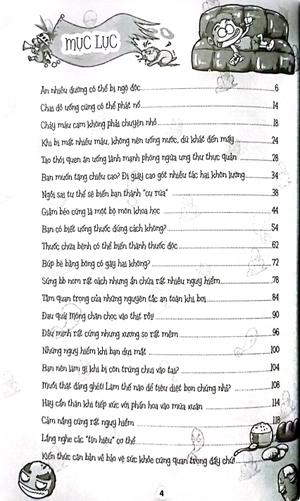 MỤC LỤC
Ăn nhiều đường có thể bị ngộ độc 6
Chai đồ uống cũng có thể phát nổ 14
Chảy máu cam không phải chuyện nhỏ 18
Khi bị mất nhiều máu, không nên uống nước, dù khát đến mấy 24
Tạo thói quen ăn uống lành mạnh phòng ngừa ung thư thực quản 28
Bạn muốn tăng chiều cao? Đi giày cao gót nhiều tác hại khôn lường 34
Ngồi sai tư thế sẽ biến bạn thành "cụ rùa" 38
Giảm béo cũng là một bộ môn khoa học 44
Bạn có biết uống thuốc đúng cách không? 54
Thuốc chữa bệnh có thể biến thành thuốc độc 62
Búp bê bằng bông có gây hại không? 72
Súng bb nom rất oách nhưng ẩn chứa rất nhiều nguy hiểm 78
Tầm quan trọng của những nguyên tắc an toàn khi bơi 84
Đau quá! Móng chân chọc vào thịt rồi! 90
Đầu mình rất cứng nhưng xương sọ rất mềm 96
Những nguy hiểm khi bạn dụi mắt 100
Bạn nên làm gì khi bị côn trùng chui vào tai? 104
Muỗi thật đáng ghét! Làm thế nào để tiêu diệt bọn chúng nhỉ? 108
Hãy cẩn thận khi tiếp xúc với phấn hoa vào mùa xuân 114
Cảm nắng cũng rất nguy hiểm 118
Lắng nghe các "tín hiệu" cơ thể
Kiến thức căn bản về bảo vệ sức khỏe cũng quan trọng đấy chứ!
4